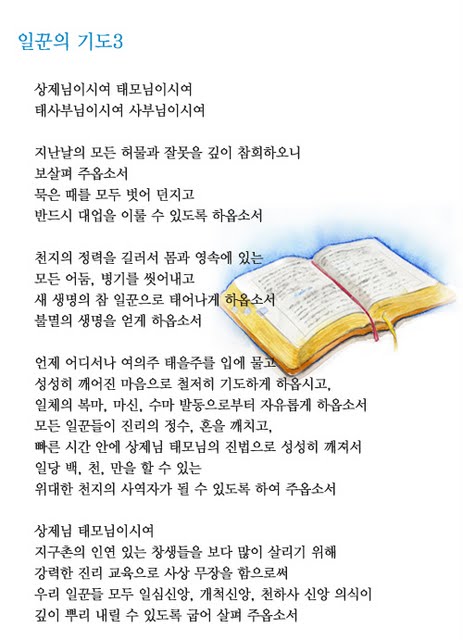 일꾼의 기도3
상제님이시여 태모님이시여
태사부님이시여 사부님이시여
지난날의 모든 허물과 잘못을 깊이 참회하오니
보살펴 주옵소서
묵은 때를 모두 벗어 던지고
반드시 대업을 이룰 수 있도록 하옵소서
천지의 정력을 길러서 몸과 영속에 있는
모든 어둠, 병기를 씻어내고
새 생명의 참 일꾼으로 태어나게 하옵소서
불멸의 생명을 얻게 하옵소서
언제 어디서나 여의주 태을주를 입에 물고
성성히 깨어진 마음으로 철저히 기도하게 하옵시고,
일체의 복마, 마신, 수마 발동으로부터 자유롭게 하옵소서
모든 일꾼들이 진리의 정수, 혼을 깨치고,
빠른 시간 안에 상제님 태모님의 진법으로 성성히 깨져서
일당 백, 천, 만을 할 수 있는
위대한 천지의 사역자가 될 수 있도록 하여 주옵소서
상제님 태모님이시여
지구촌의 인연 있는 창생들을 보다 많이 살리기 위해
강력한 진리 교육으로 사상 무장을 함으로써
우리 일꾼들 모두 일심신앙, 개척신앙, 천하사 신앙 의식이
깊이 뿌리 내릴 수 있도록 굽어 살펴 주옵소서